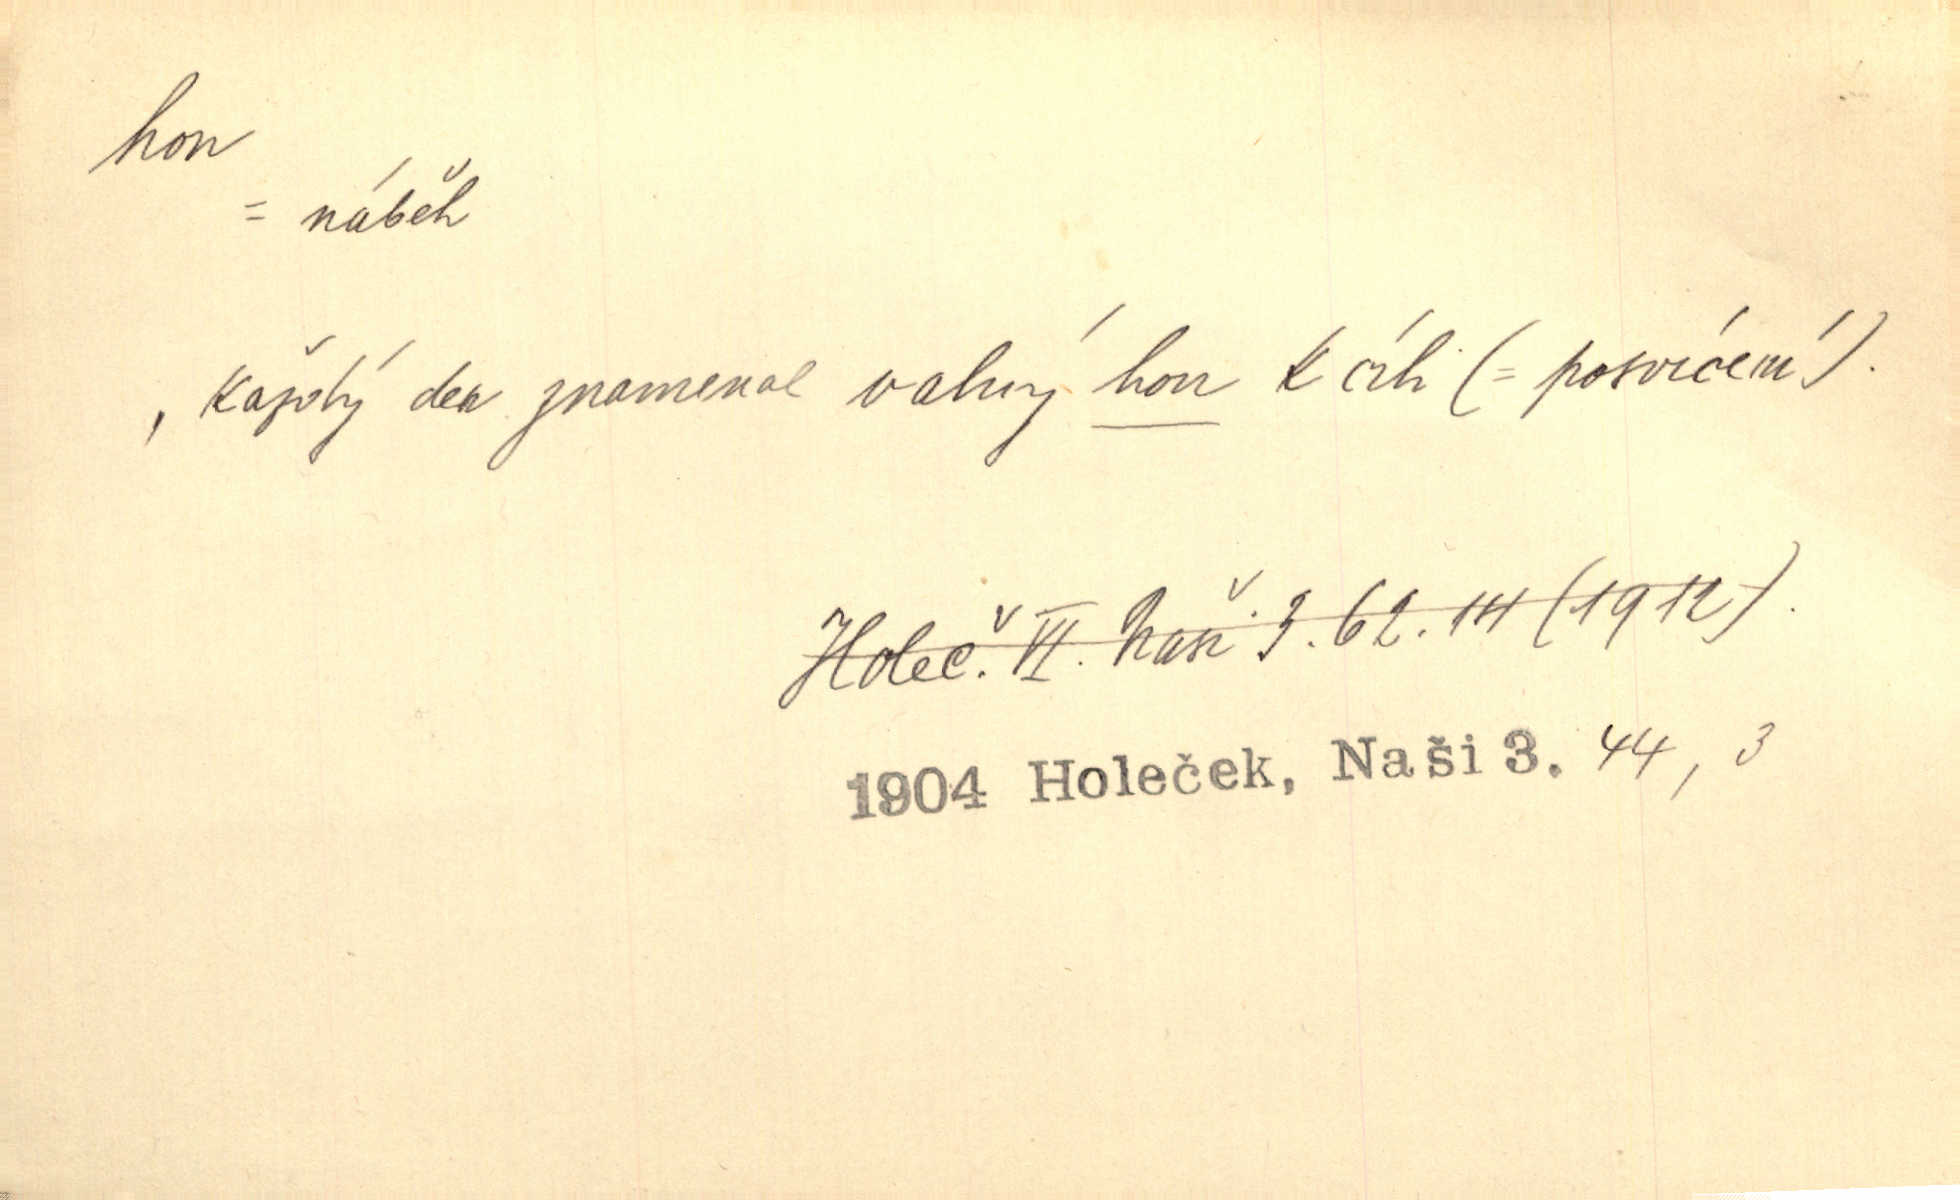 hon
= náběh
, každý den znamenal valný hon k cíli (= posvícení).
Holeč. VI. Naši 3. 62. 14 (1912).
1904 Holeček, Naši 3. 44, 3